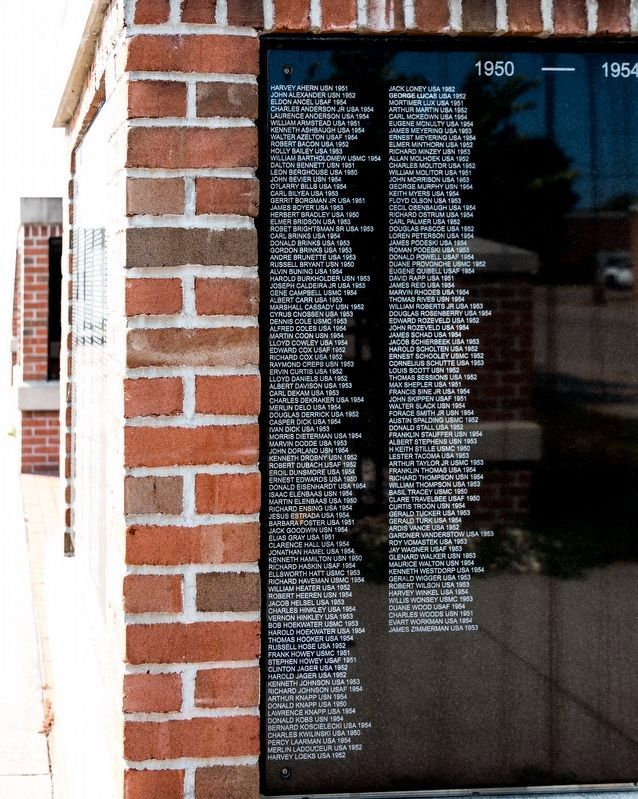 1950 — 1954
HARVEY AHERN USN 1951
JOHN ALEXANDER USN 1952
ELDON ANCEL USAF 1954
CHARLES ANDERSON JR USA 1954
LAURENCE ANDERSON USA 1954
WILLIAM ARMSTEAD USA 1951
KENNETH ASHBAUGH USA 1954
WALTER AZELTON USAF 1954
ROBERT BACON USA 1952
HOLLY BAILEY USA 1953
WILLIAM BARTHOLOMEW USMC 1954
DALTON BENNETT USN 1951
LEON BERGHOUSE USA 1950
JOHN BEVIER USN 1954
O?LARRY BILLS USA 1954
CARL BILYEA USA 1953
GERRIT BORGMAN JR USA 1951
JAMES BOYER USA 1953
HERBERT BRADLEY USA 1950
ELMER BRIDSON USA 1953
ROBET BRIGHTSMAN SR USA 1953
CARL BRINKS USA 1954
DONALD BRINKS USA 1953
GORDON BRINKS USA 1953
ANDRE BRUNETTE USA 1953
RUSSELL BRYANT USN 1950
ALVIN BUNING USA 1954
HAROLD BURKHOLDER USN 1953
JOSEPH CALDEIRA JR USA 1953
GENE CAMPBELL USMC 1954
ALBERT CARR USA 1953
MARSHALL CASSADY USN 1952
CYRUS CNOSSEN USA 1953
DENNIS COLE USMC 1953
ALFRED COLES USA 1954
MARTIN COON USN 1954
LLOYD COWLEY USA 1954
EDWARD COX USAF 1952
RICHARD COX USA 1952
RAYMOND CREPS USN 1953
ERVIN CURTIS USA 1952
LLOYD DANIELS USA 1952
ALBERT DAVISON USA 1953
CARL DEKAM USA 1953
CHARLES DEKRAKER USA 1954
MERLIN DELO USA 1954
DOUGLAS DERRICK USA 1952
CASPER DICK USA 1954
IVAN DICK USA 1953
MORRIS DIETERMAN USA 1954
MARVIN DODDE USA 1953
JOHN DORLAND USN 1954
KENNETH DROBNY USA 1952
ROBERT DUBACH USAF 1952
EROIL DUNSMORE USA 1954
ERNEST EDWARDS USA 1950
DONALD EISENHARDT USA 1954
ISAAC ELENBAAS USN 1954
MARTIN ELENBAAS USA 1950
RICHARD ENSING USA 1954
JESUS ESTRADA USA 1954
BARBARA FOSTER USA 1951
JACK GOODWIN USN 1954
ELIAS GRAY USA 1951
CLARENCE HALL USA 1954
JONATHAN HAMEL USA 1954
KENNETH HAMILTON USN 1950
RICHARD HASKIN USAF 1954
ELLSWORTH HATT USMC 1953
RICHARD HAVEMAN USMC 1954
WILLIAM HEATER USA 1952
ROBERT HEEREN USN 1954
JACOB HELSEL USA 1953
CHARLES HINKLEY USA 1954
VERNON HINKLEY USA 1953
BOB HOEKWATER USMC 1953
HAROLD HOEKWATER USA 1954
THOMAS HOOKER USA 1954
RUSSELL HOSE USA 1952
FRANK HOWEY USMC 1951
STEPHEN HOWEY USAF 1951
CLINTON JAGER USA 1952
HAROLD JAGER USA 1952
KENNETH JOHNSON USA 1953
RICHARD JOHNSON USAF 1954
ARTHUR KNAPP USN 1954
DONALD KNAPP USA 1950
LAWRENCE KNAPP USA 1954
DONALD KOBS USN 1954
BERNARD KOSCIELECKI USA 1954
CHARLES KWILINSKI USA 1950
PERCY LAARMAN USA 1954
MERLIN LADOUCEUR USA 1952
HARVEY LOEKS USA 1952
JACK LONEY USA 1952
GEORGE LUCAS USA 1952
MORTIMER LUX USA 1951
ARTHUR MARTIN USA 1952
CARL MCKEOWN USA 1954
EUGENE MCNULTY USA 1954
JAMES MEYERING USA 1953
ERNEST MEYERING USA 1954
ELMER MINTHORN USA 1952
RICHARD MINZEY USN 1953
ALLAN MOLHOEK USA 1952
CHARLES MOLITOR USA 1952
WILLIAM MOLITOR USA 1951
JOHN MORRISON USA 1953
GEORGE MURPHY USN 1954
KEITH MYERS USA 1954
FLOYD OLSON USA 1953
CECIL OSENBAUGH USA 1954
RICHARD OSTRUM USA 1954
CARL PALMER USA 1952
DOUGLAS PASCOE USA 1952
LOREN PETERSON USA 1954
JAMES PODESKI USA 1954
ROMAN PODESKI USA 1953
DONALD POWELL USAF 1954
DUANE PROVONCHE USMC 1952
EUGENE QUIBELL USAF 1954
DAVID RAPP USA 1951
JAMES REID USA 1954
MARVIN RHODES USA 1954
THOMAS RIVES USN 1954
WILLIAM ROBERTS JR USA 1953
DOUGLAS ROSENBERRY USA 1954
EDWARD ROZEVELD USA 1952
JOHN ROZEVELD USA 1954
JAMES SCHAD USA 1954
JACOB SCHIERBEEK USA 1953
HAROLD SCHOLTEN USA 1952
ERNEST SCHOOLEY USMC 1952
CORNELIUS SCHUTTE USA 1953
LOUIS SCOTT USN 1952
THOMAS SESSIONS USA 1952
MAX SHEPLER USA 1951
FRANCIS SINE JR USA 1954
JOHN SKIPPEN USAF 1951
WALTER SLACK USN 1954
FORACE SMITH JR USN 1954
AUSTIN SPALDING USMC 1952
DONALD STALL USA 1952
FRANKLIN STAUFFER USN 1954
ALBERT STEPHENS USN 1953
H KEITH STILLE USMC 1950
LESTER TACOMA USA 1953
ARTHUR TAYLOR JR USMC 1953
FRANKLIN THOMAS USA 1954
RICHARD THOMPSON USN 1954
WILLIAM THOMPSON USA 1953
BASIL TRACEY USMC 1950
CLARE TRAVELBEE USAF 1950
CURTIS TROON USN 1954
GERALD TUCKER USA 1953
GERALD TURK USA 1954
ARDIS VANCE USA 1952
GARDNER VANDERSTOW USA 1953
ROY VOMASTEK USA 1953
JAY WAGNER USAF 1953
GLENARD WALKER USN 1953
MAURICE WALTON USN 1954
KENNETH WESTDORP USA 1954
GERALD WIGGER USA 1953
ROBERT WILSON USA 1953
HARVEY WINKEL USA 1954
WILLIS WONSEY USMC 1953
DUANE WOOD USAF 1954
CHARLES WOODS USN 1951
EVART WORKMAN USA 1954
JAMES ZIMMERMAN USA 1953